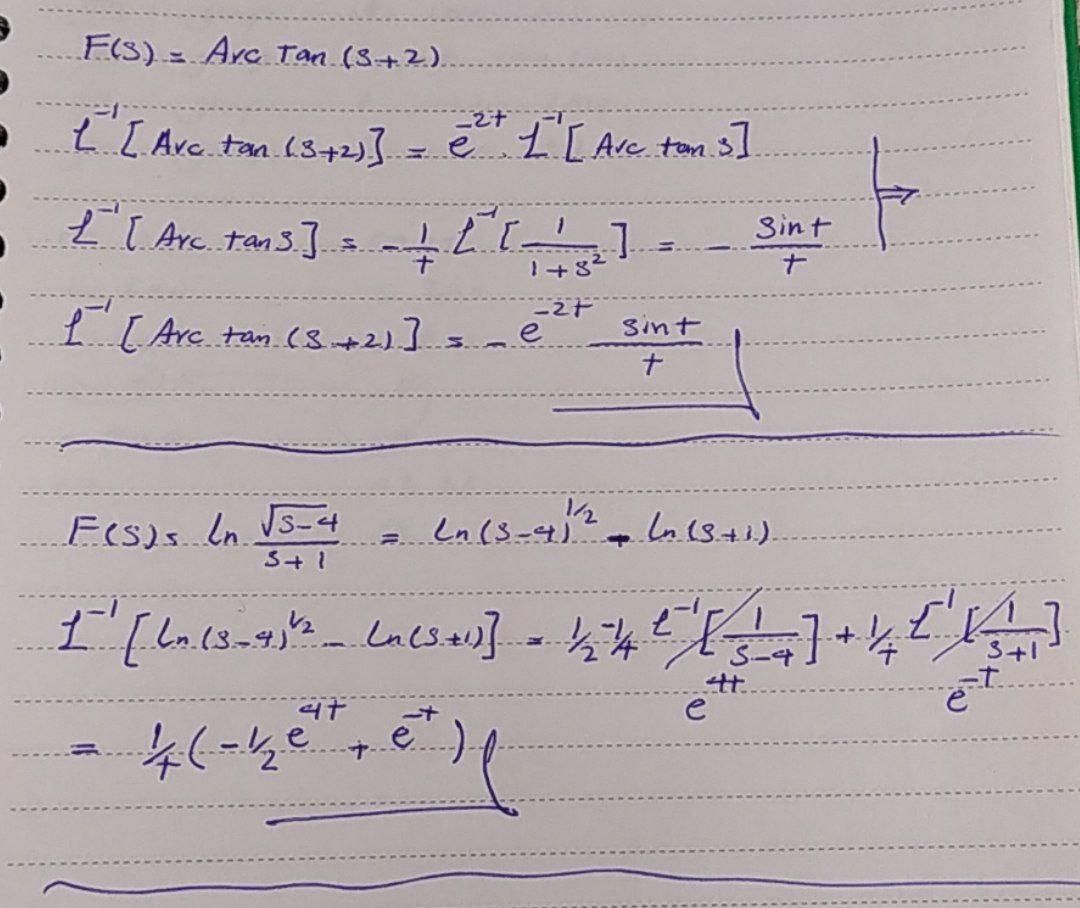 F(s) = Arc Tan (s+2)
L⁻¹[Arc tan (s+2)] = e⁻²ᵗ . L⁻¹[Arc tan s]
L⁻¹[Arc tan s] = -1/t L⁻¹[1/(1+s²)] = - sint/t
L⁻¹[Arc tan (s+2)] = - e⁻²ᵗ sint/t
F(s) = ln √(s-4)/(s+1) = ln(s-4)^1/2 - ln(s+1)
L⁻¹[ln(s-4)^1/2 - ln(s+1)] = 1/2 -1/t L⁻¹[1/(s-4)] + 1/t L⁻¹[1/(s+1)]
e⁴ᵗ e⁻ᵗ
= 1/t (-1/2 e⁴ᵗ + e⁻ᵗ)